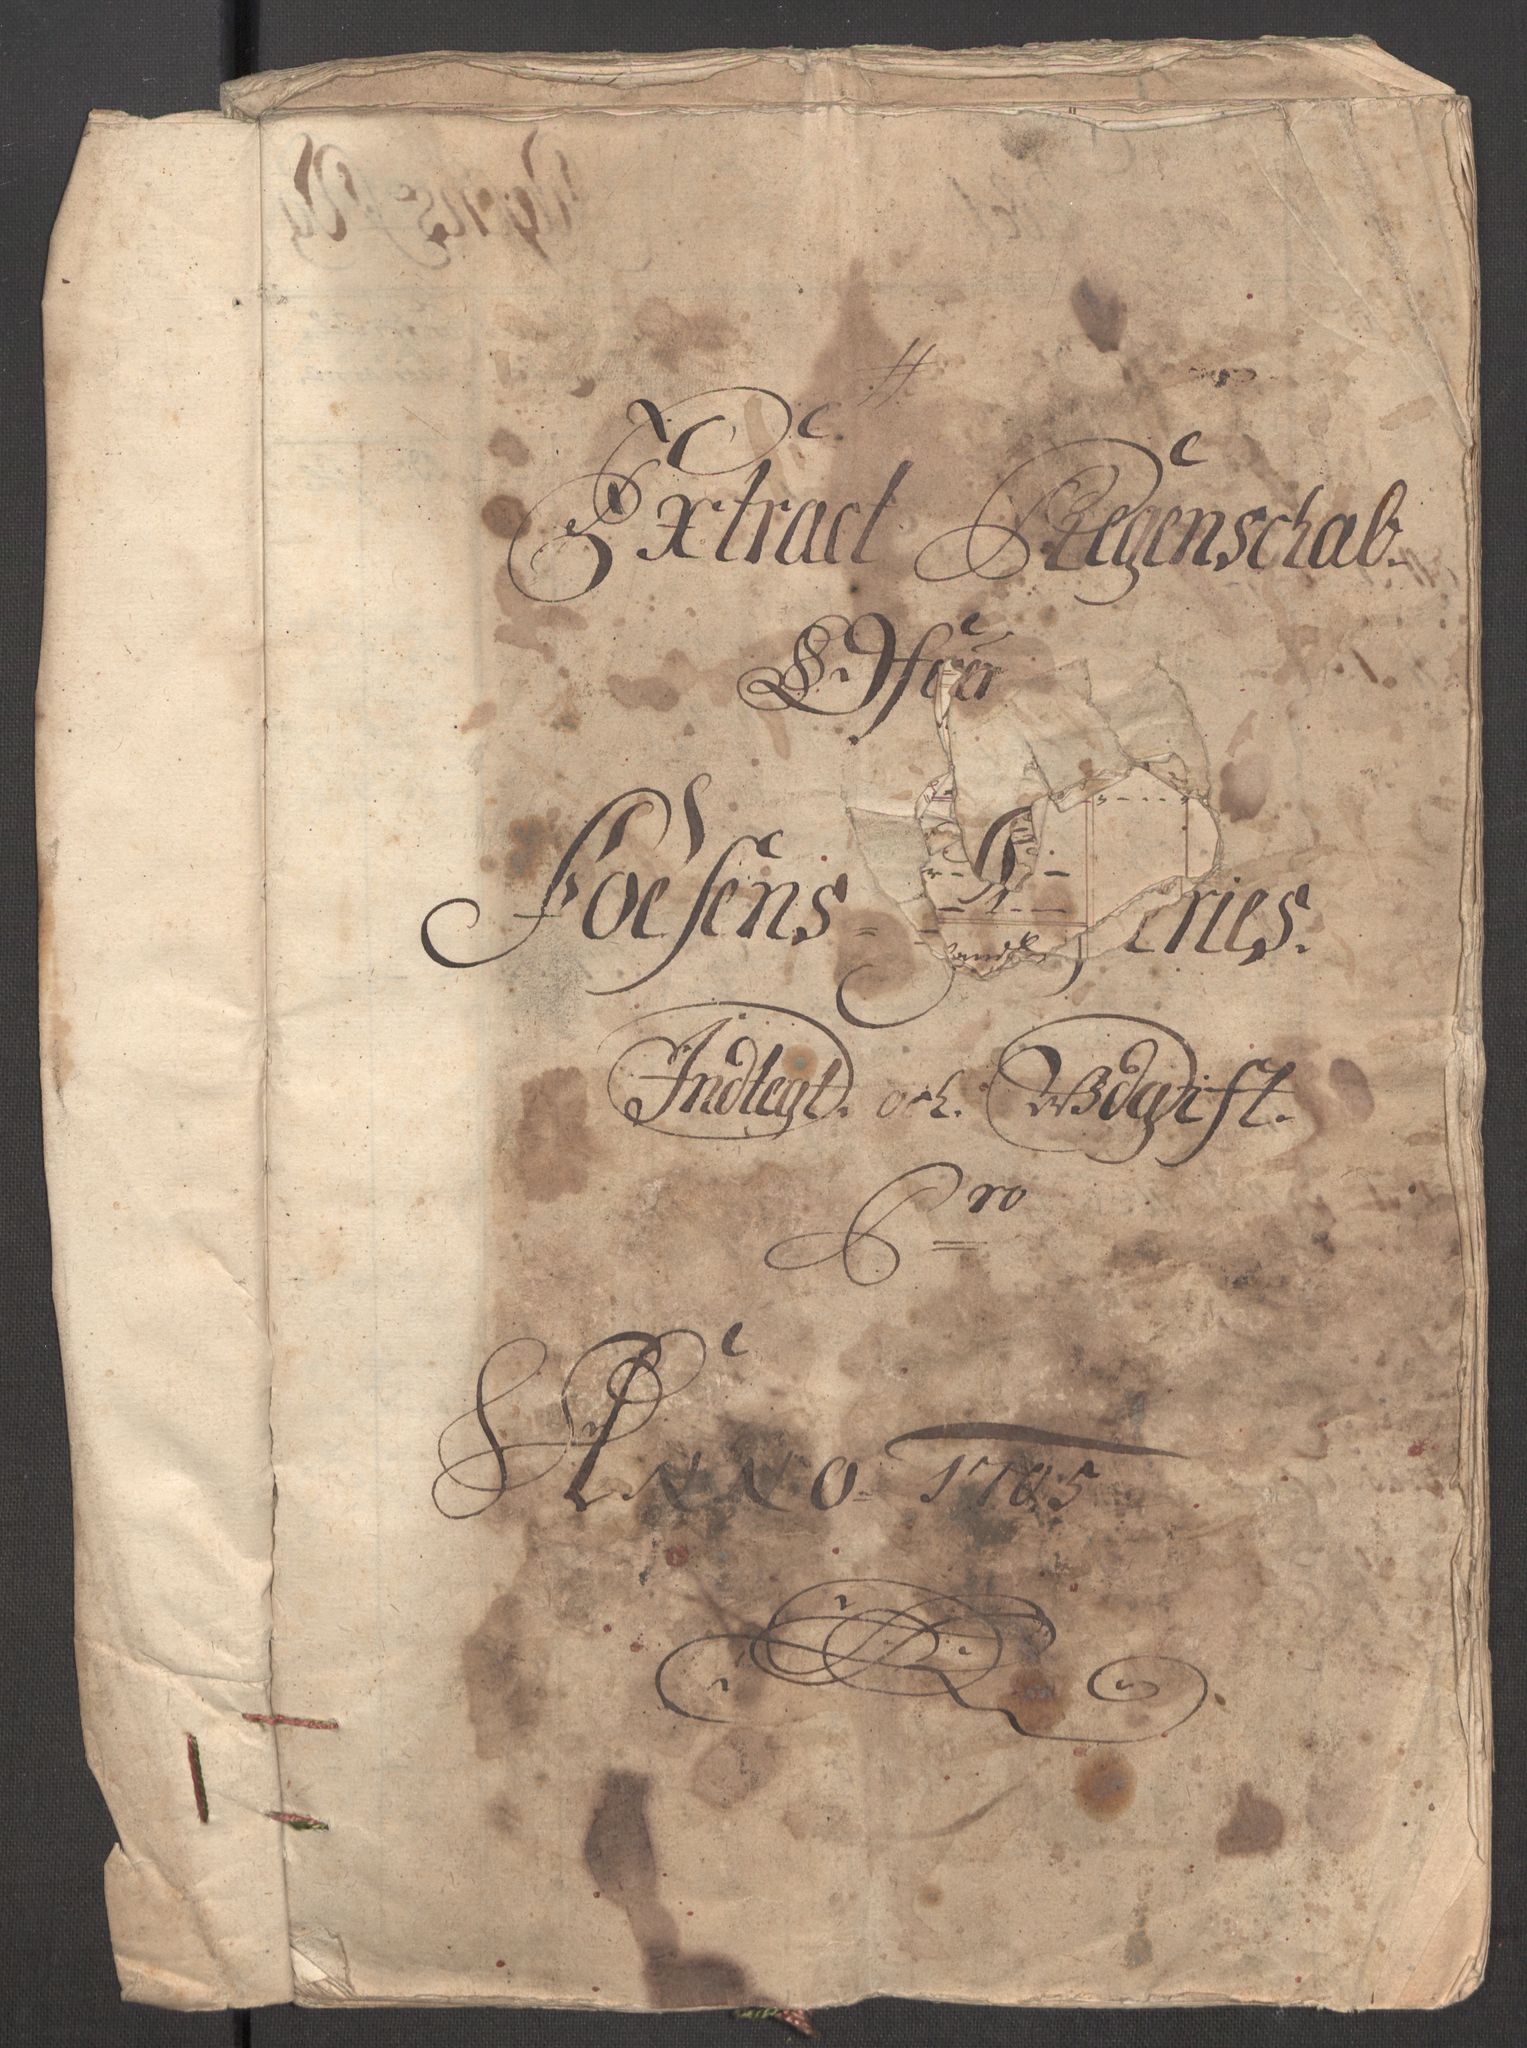 Extract Regenschab.
Ofver
Foesens = eries.
Indtegt. och. Wdgift.
Pro
Anno = 1705